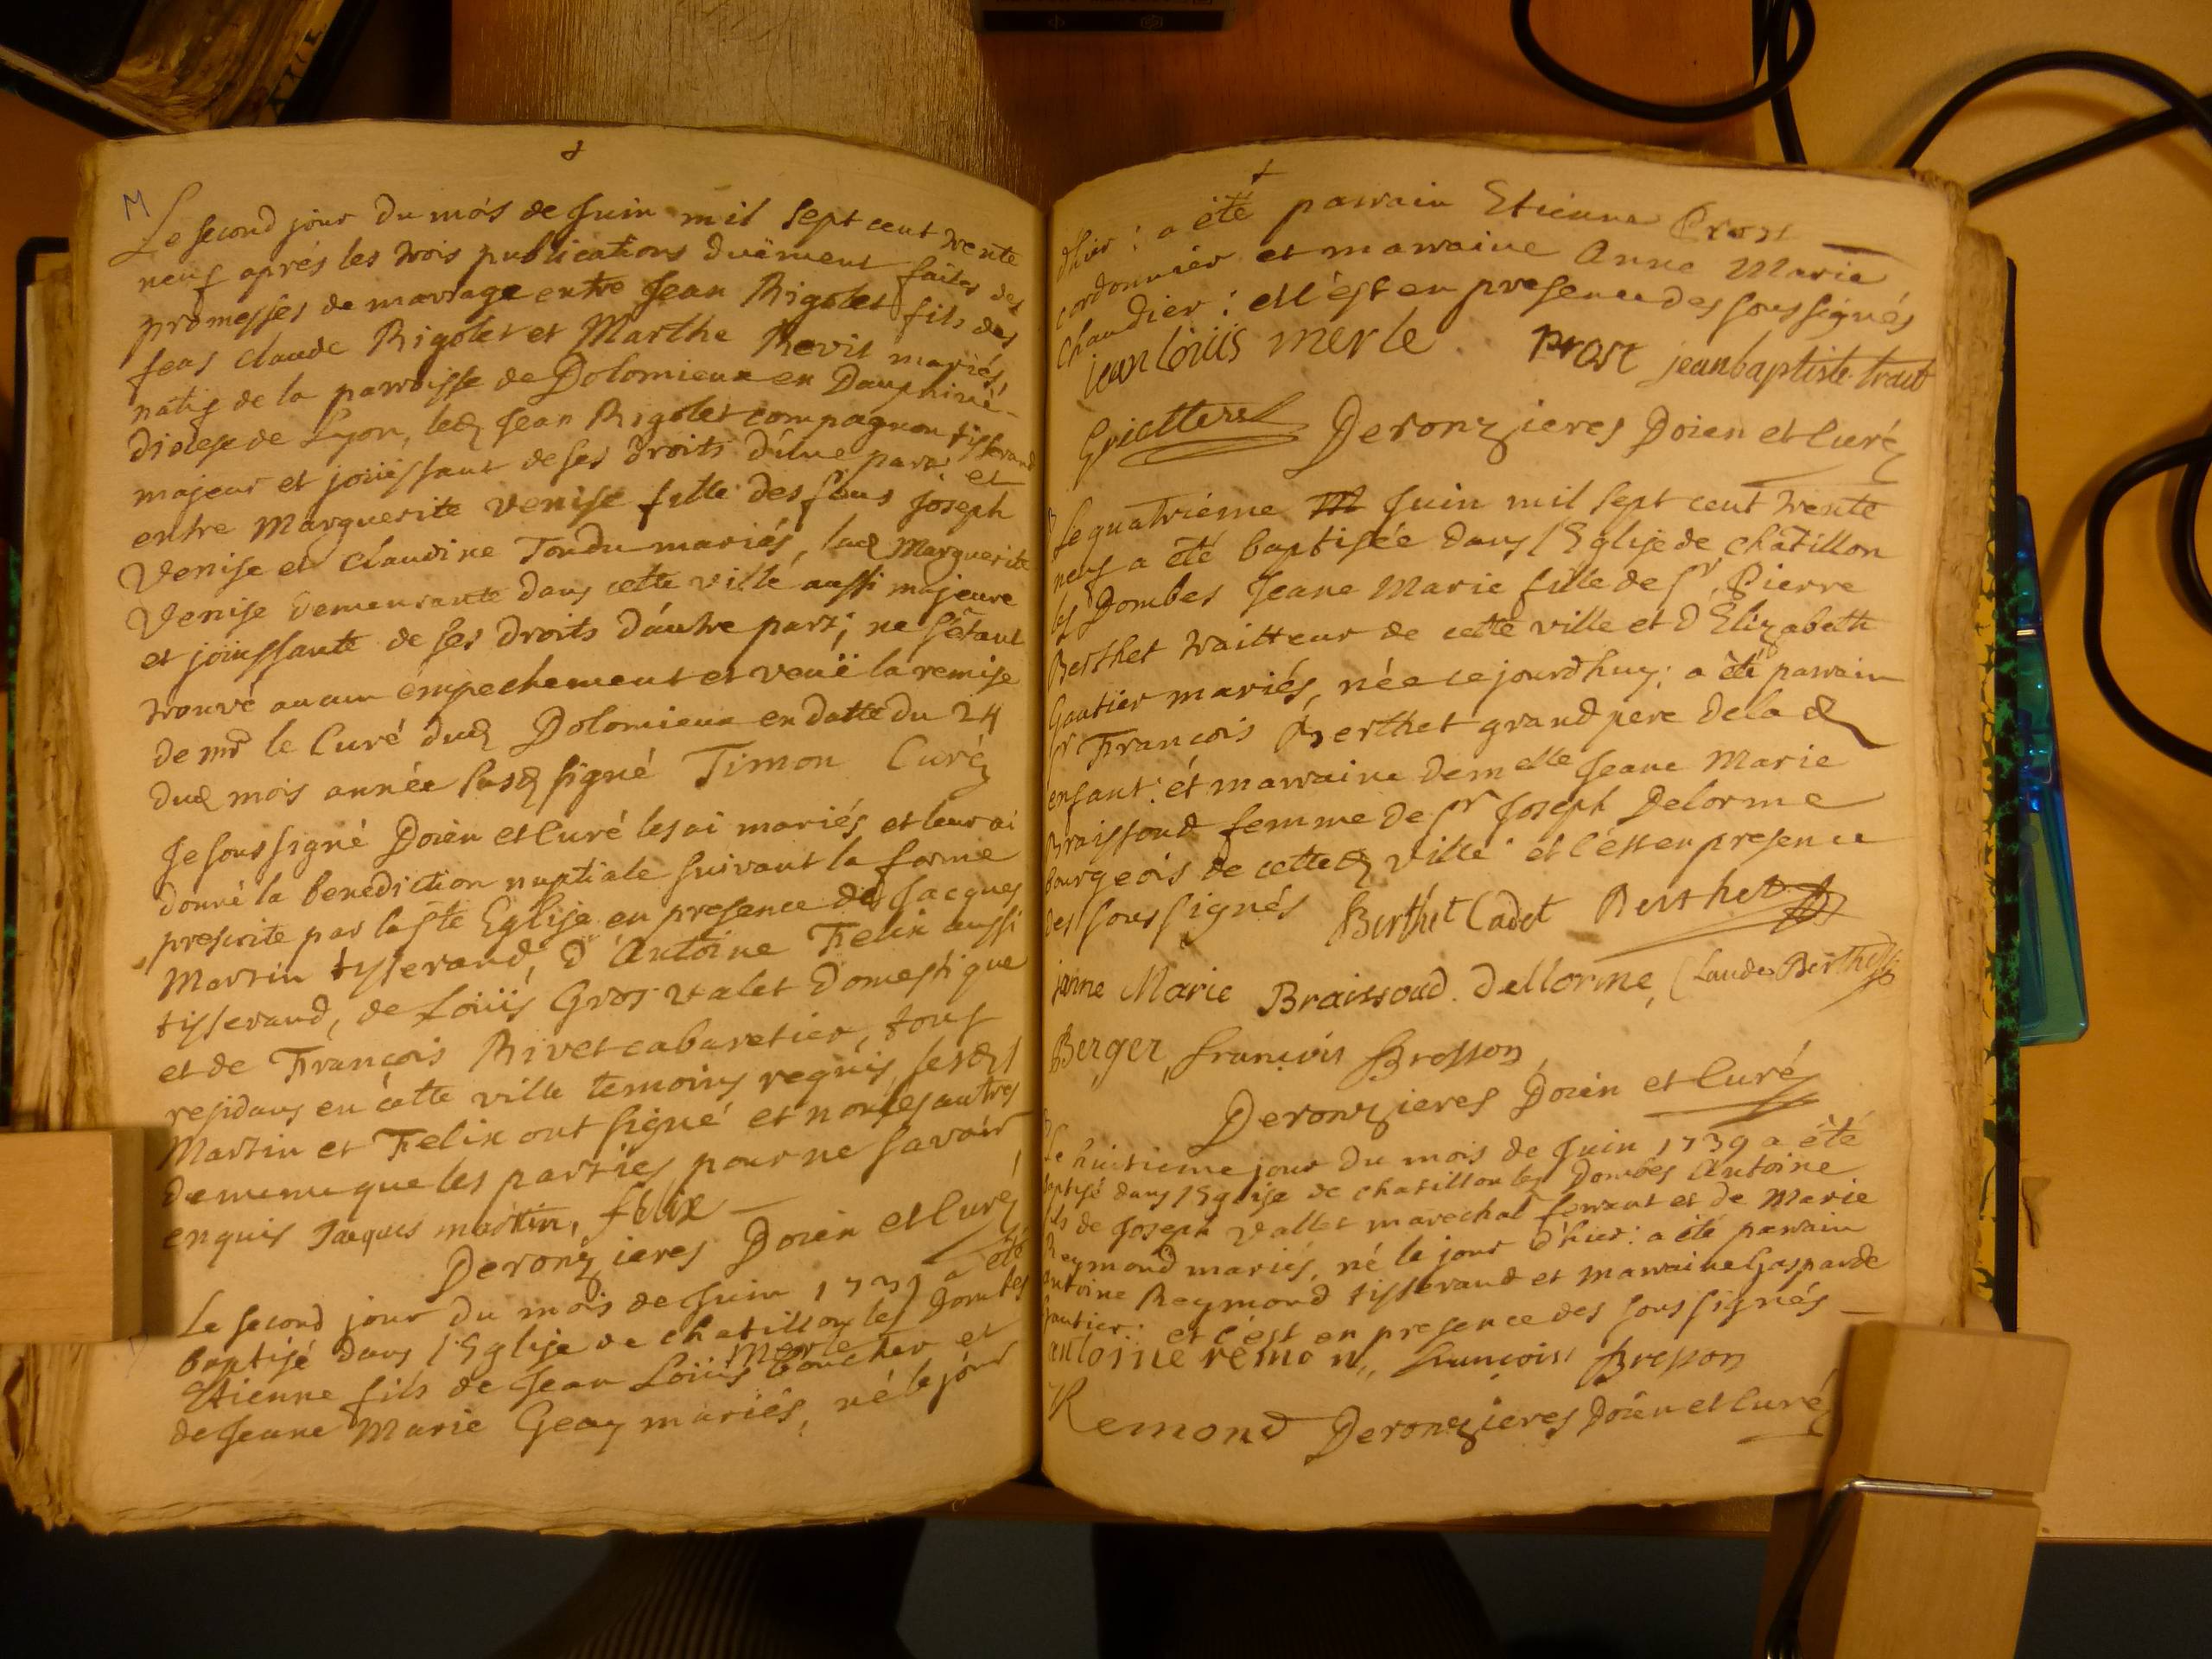 M
Le second jour du mois de Juin mil sept cent trente
neuf aprés les trois publications duëment faites des
promesses de mariage entre Jean Rigolet fils des
feus claude Rigolet et Marthe Revit mariés,
natif de la parroisse de Dolomieux en Dauphiné
Diocese de Lyon, led Jean Rigolet compagnon tisserand
majeur et joüissant de ses droits d'une part: et
entre Marguerite Venise fille des feus Joseph
Venise et claudine Tondu mariés, lad Marguerite
Venise demeurante dans cette ville aussi majeure
et jouissante de ses droits d'autre part; ne s'étant
trouvé aucun émpechement et veuë la remise
de mr le Curé dud Dolomieux en datte du 24
dud mois année susd signé Timon Curé
Je soussigné Doien et Curé les ai mariés et leur ai
donné la benediction nuptiale suivant la forme
prescrite par la ste Eglise en presence de Jacques
Martin tisserand, d'Antoine Felix aussi
tisserand, de Loüis Gros valet domestique
et de François Rivet cabaretier, tous
residans en cette ville temoins requis, lesd
Martin et Felix ont signé et non les autres
de meme que les parties pour ne savoir
enquis Jacques martin, felix
Deronzieres Doien et Curé
Le second jour du mois de Juin 1739 a été
baptisé dans l'Eglise de chatillon les Dombes
Merle
Etienne fils de Jean Loüis boucher et
de Jeane Marie Geay mariés, né le jour
d'hier: a été parrain Etienne Prost
cordonnier et marraine Anne Marie
Chaudier: et c'est en presence des soussignés
jean loüis merle prost jean baptiste
Deronzieres Doien et Curé
Le quatriéme Juin mil sept cent trente
neuf a été baptisée dans l'Eglise de chatillon
les Dombes Jeane Marie fille de sr Pierre
Berthet traitteur de cette ville et d'Elizabeth
Gautier mariés, née cejourdhuy: a été parrain
sr François Berthet grand pere de la d
enfant: et marraine demelle Jeane Marie
Braissoud femme de sr Joseph Delorme
bourgeois de cette d ville et c'est en presence
des soussignés Berthet Cadet Berthet
janne Marie Braissoud. Dellorme, Claude Berthet
Berger, francois Bresson
Deronzieres Doien et Curé
Le huitieme jour du mois de Juin 1739 a été
baptisé dans l'Eglise de chatillon les Dombes Antoine
fils de Joseph Vallet marechal ferrant et de Marie
Reymond mariés, né le jour d'hier: a été parrain
antoine Reymond tisserand et marraine Gasparde
Gautier: et c'est en presence des soussignés
antoine remon francois Bresson
Remond Deronzieres Doien et Curé